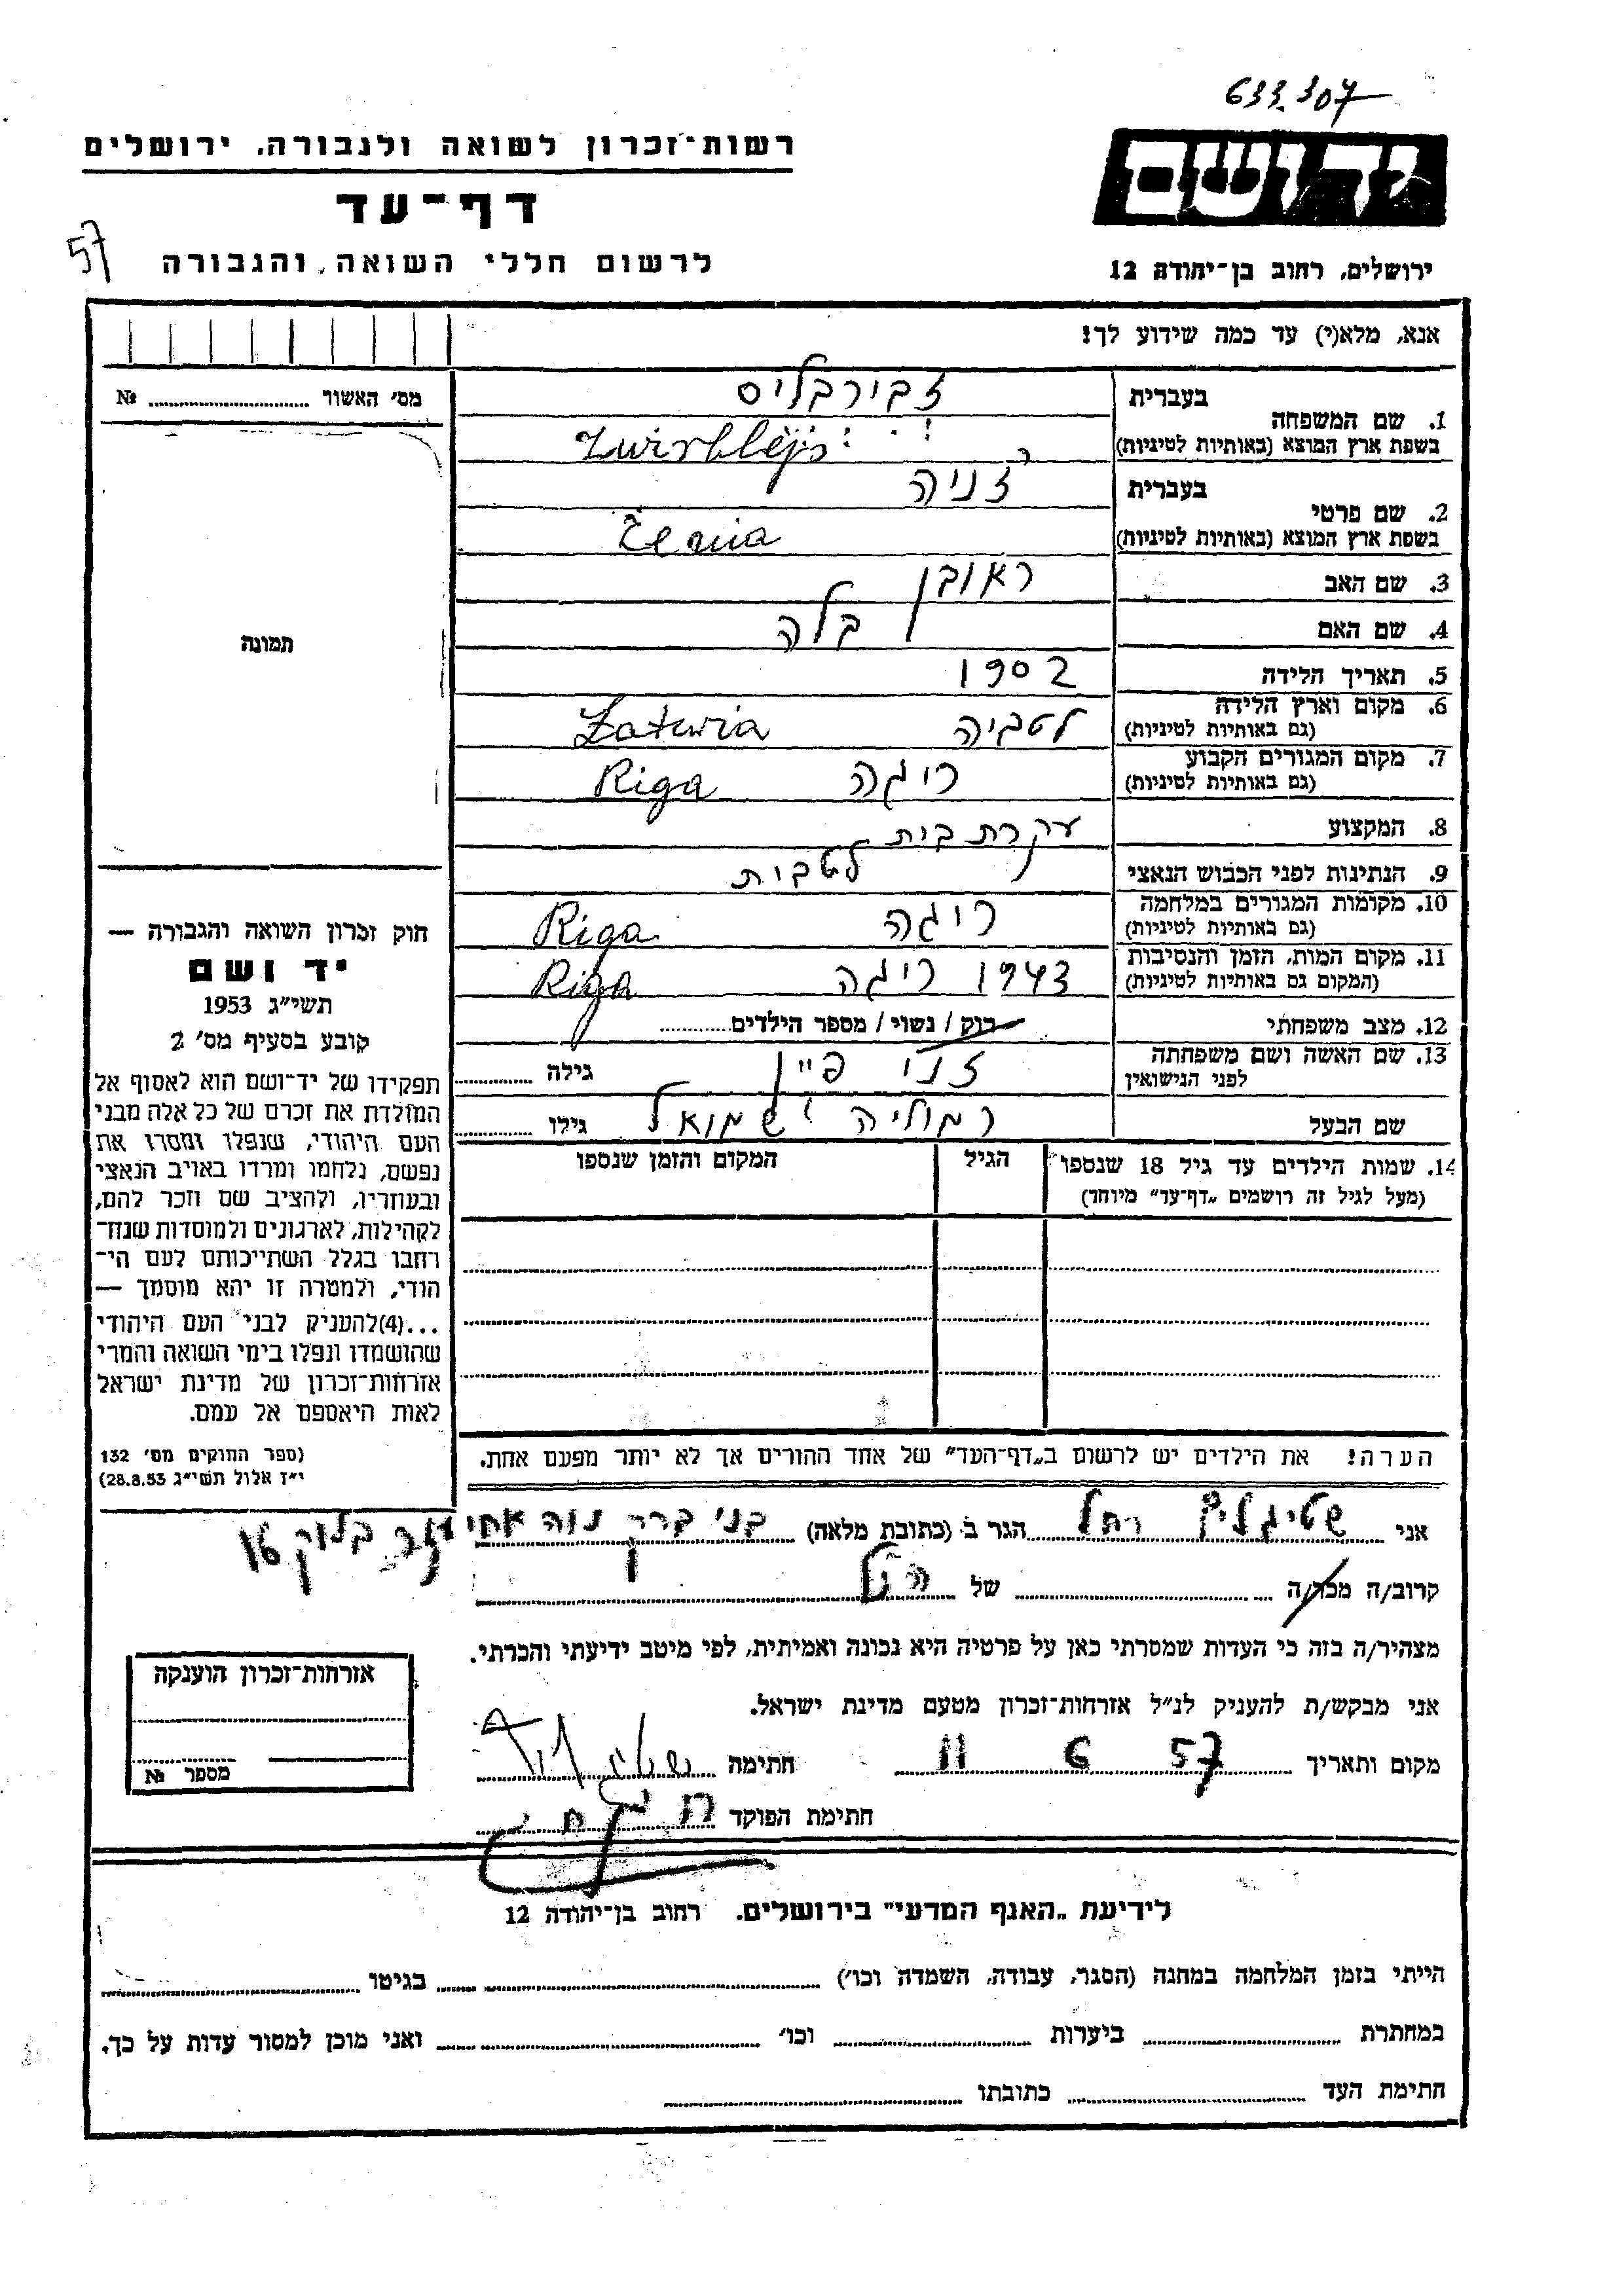 633.307
רשות־זכרון לשואה ולגבורה, ירושלים
דף־עד
57
לרשום חללי השואה והגבורה
ירושלים, רחוב בן־יהודה 12
אנא, מלא(י) עד כמה שידוע לך!
מס׳ האשור № 
1. שם המשפחה
בעברית זבירבליס
בשפת ארץ המוצא (באותיות לטיניות)
2. שם פרטי
בעברית זניה
בשפת ארץ המוצא (באותיות לטיניות) Ženia
3. שם האב ראובן
4. שם האם בלה
5. תאריך הלידה 1902
6. מקום וארץ הלידה לטביה Latwia
(גם באותיות לטיניות)
7. מקום המגורים הקבוע ריגה Riga
(גם באותיות לטיניות)
8. המקצוע עקרת בית
9. הנתינות לפני הכבוש הנאצי לטבית
10. מקומות המגורים במלחמה ריגה Riga
(גם באותיות לטיניות)
11. מקום המות, הזמן והנסיבות 1943 ריגה Riga
(המקום גם באותיות לטיניות)
12. מצב משפחתי רוק / נשוי / מספר הילדים
13. שם האשה ושם משפחתה
לפני הנישואין זני פיין גילה
שם הבעל שמואל גילו
14. שמות הילדים עד גיל 18 שנספו הגיל המקום והזמן שנספו
(מעל לגיל זה רושמים „דף־עד״ מיוחד)
הערה! את הילדים יש לרשום ב„דף־העד״ של אחד ההורים אך לא יותר מפעם אחת.
תמונה
חוק זכרון השואה והגבורה —
יד ושם
תשי״ג 1953
קובע בסעיף מס׳ 2
תפקידו של יד־ושם הוא לאסוף אל
המולדת את זכרם של כל אלה מבני
העם היהודי, שנפלו ומסרו את
נפשם, נלחמו ומרדו באויב הנאצי
ובעוזריו, ולהציב שם וזכר להם,
לקהילות, לארגונים ולמוסדות שנח־
רבו בגלל השתייכותם לעם הי־
הודי, ולמטרה זו יהא מוסמך —
...(4)להעניק לבני העם היהודי
שהושמדו ונפלו בימי השואה והמרי
אזרחות־זכרון של מדינת ישראל
לאות היאספם אל עמם.
(ספר החוקים מס׳ 132
י״ז אלול תשי״ג 28.8.53)
אני שטיגליץ רחל הגר ב (כתובת מלאה) בני ברק נוה אחיעזר בלוק 16
קרוב/ה מכר/ה של הנ״ל
מצהיר/ה בזה כי העדות שמסרתי כאן על פרטיה היא נכונה ואמיתית, לפי מיטב ידיעתי והכרתי.
אני מבקש/ת להעניק לנ״ל אזרחות־זכרון מטעם מדינת ישראל.
מקום ותאריך 11 6 57 חתימה
חתימת הפוקד
אזרחות־זכרון הוענקה
מספר №
לידיעת „האגף המדעי״ בירושלים. רחוב בן־יהודה 12
הייתי בזמן המלחמה במחנה (הסגר, עבודה, השמדה וכו׳) בגיטו
במחתרת ביערות וכו׳ ואני מוכן למסור עדות על כך.
חתימת העד כתובתו